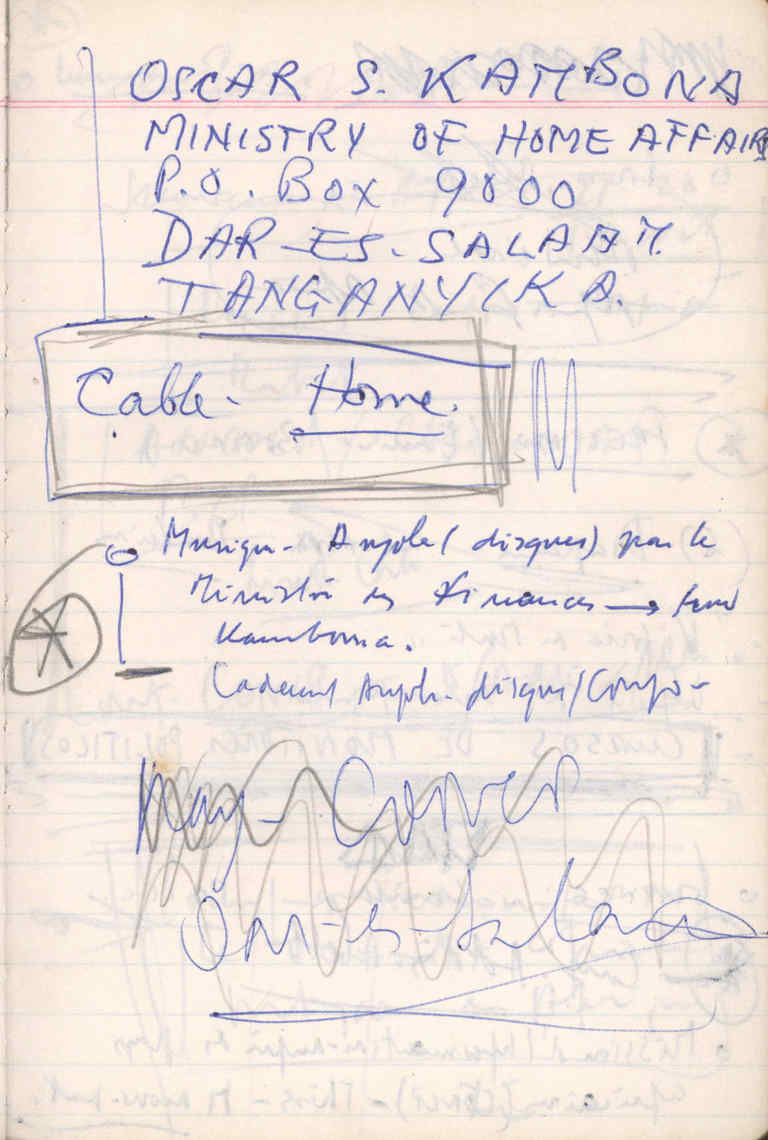 OSCAR S. KAMBONA
MINISTRY OF HOME AFFAIRS
P.O. BOX 9000
DAR-ES-SALAAM.
TANGANYIKA.
Cable- Home.
Musique- Angola (disques) pour le
Ministre des Finances →
Kambona.
Angola- disques/Congo-
Dar-es-Salaam